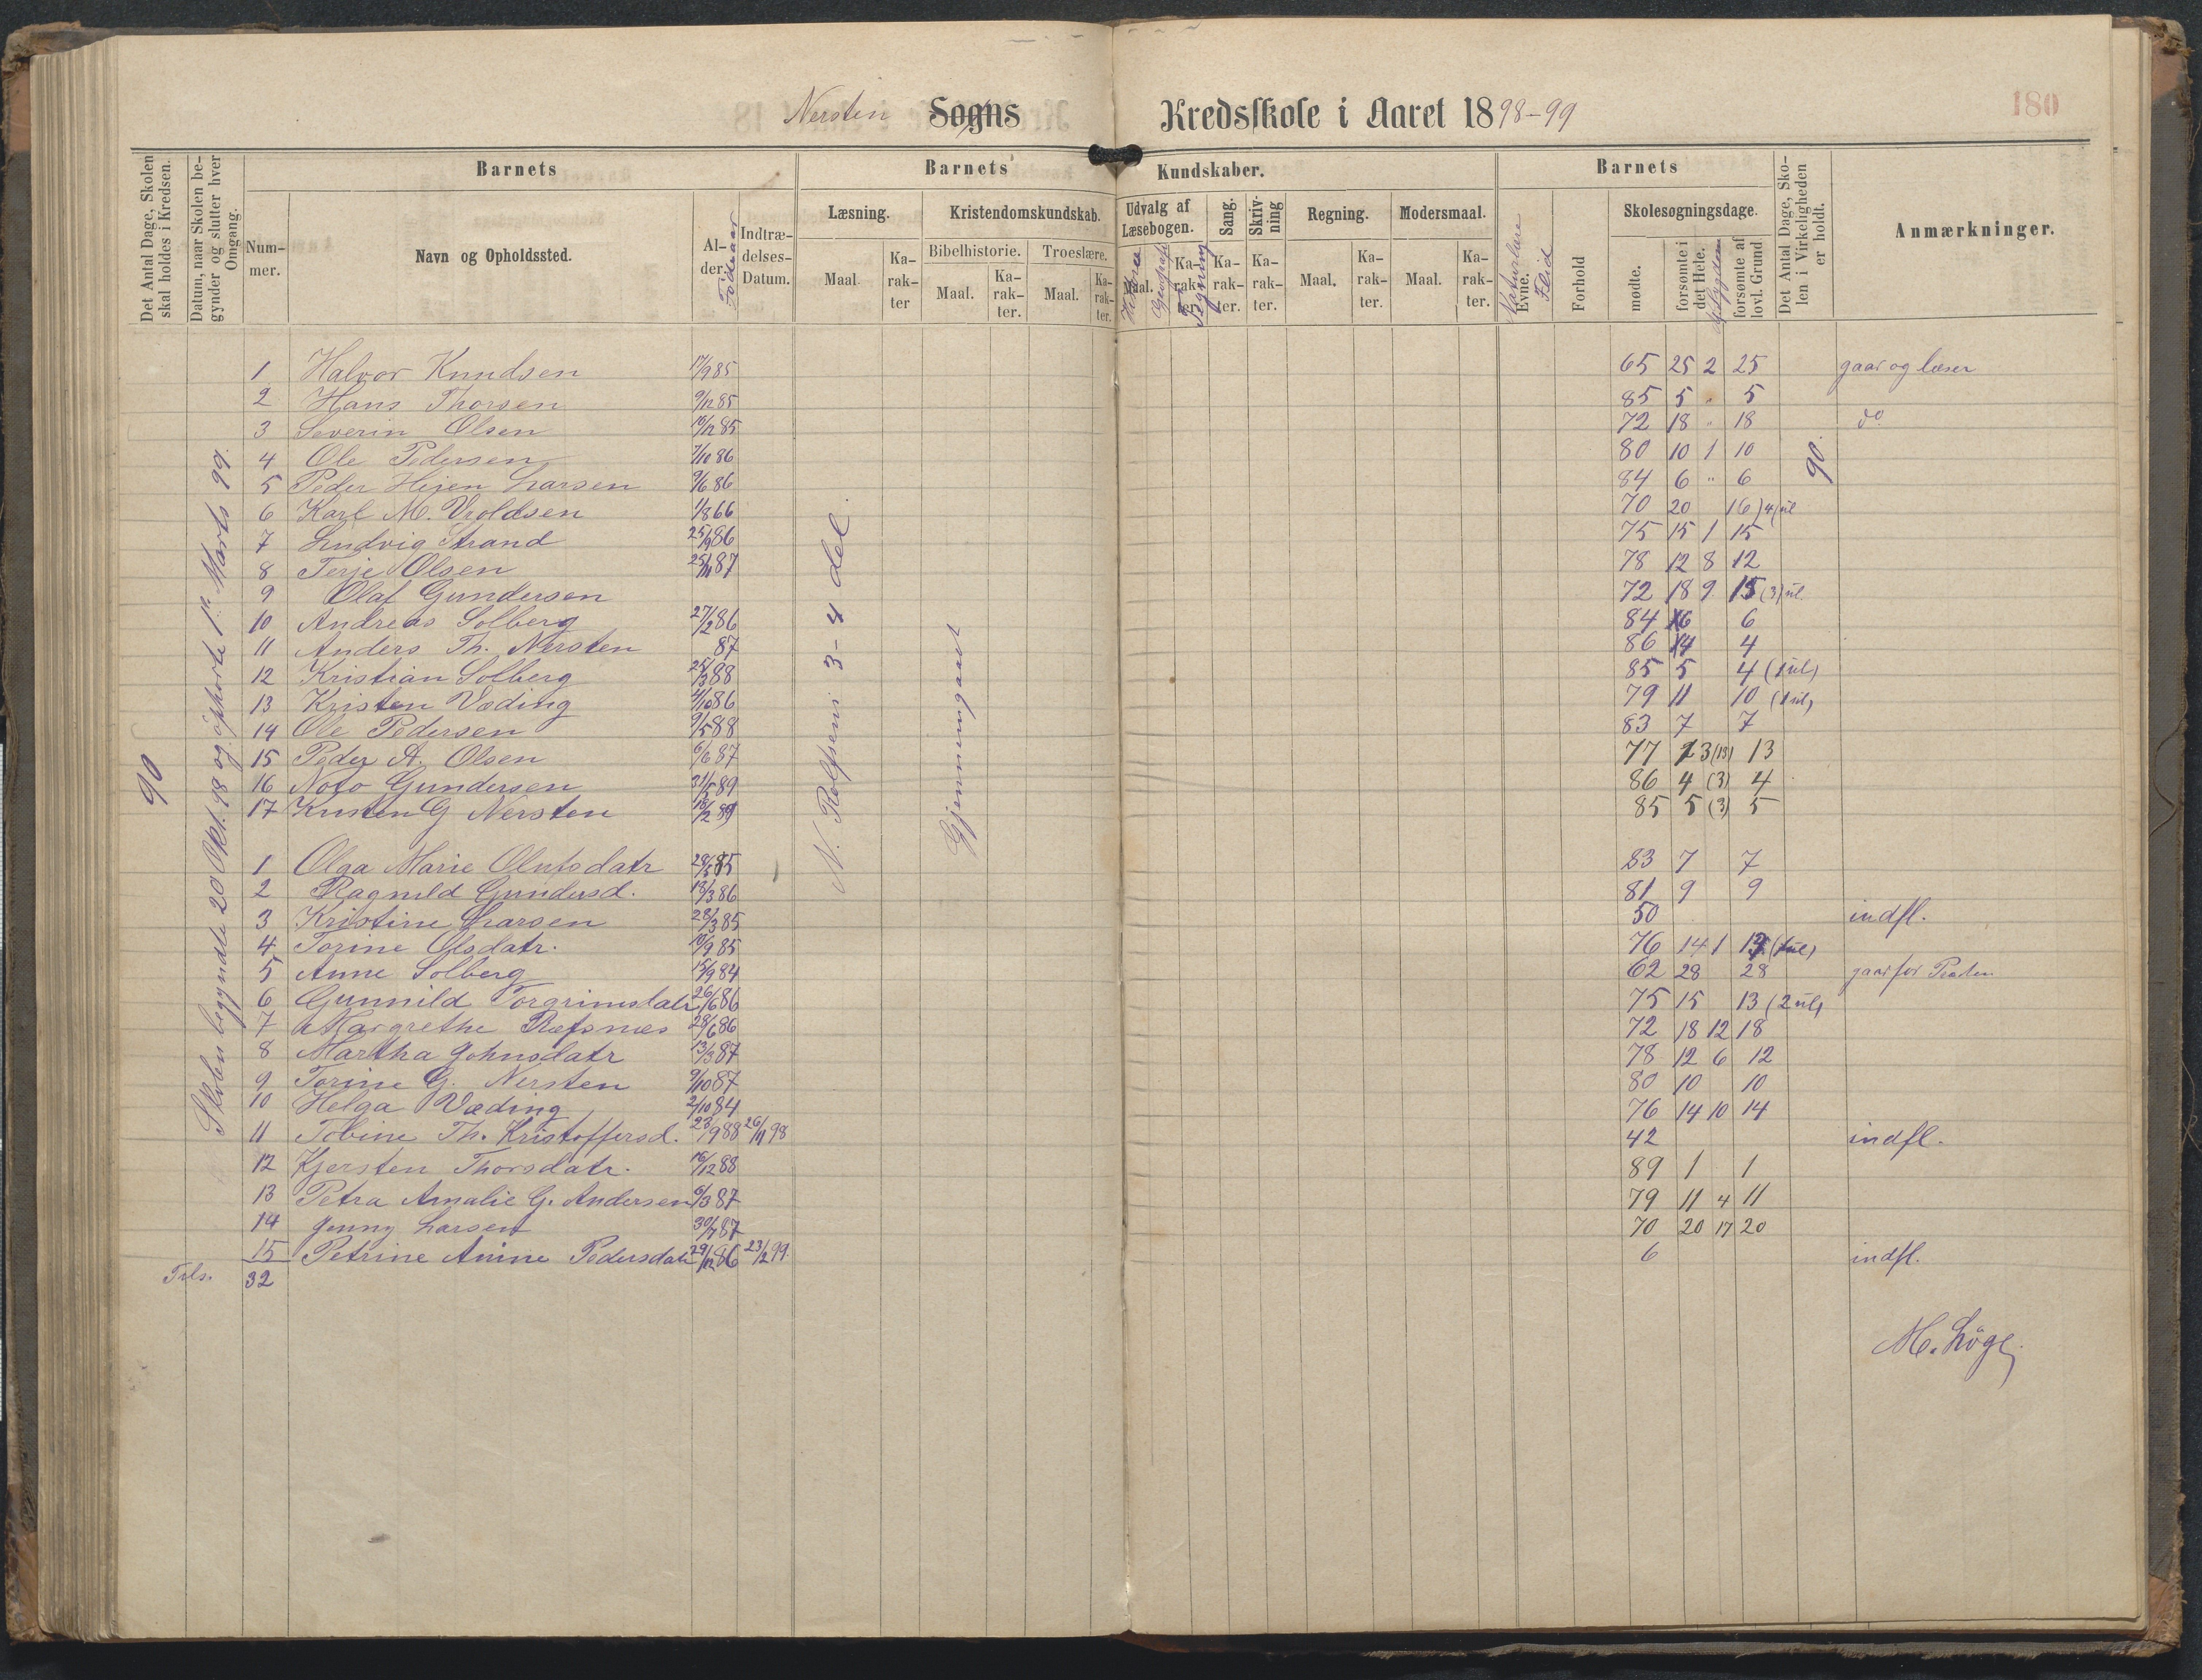 Nersten Sogns Kredsskole i Aaret 1898-99
180
Det Antal Dage, Skolen skal holdes i Kredsen.
Datum, naar Skolen begynder og slutter hver Omgang.
Barnets
Nummer.
Navn og Opholdssted.
Alder.
Födeaar
Indtrædelses-Datum.
Barnets Kundskaber.
Læsning.
Maal.
Karakter
Kristendomskundskab.
Bibelhistorie.
Maal.
Karakter.
Troeslære.
Maal.
Karakter.
Udvalg af Læsebogen.
Maal.
Karakter.
Geografi
Tegning
Sang.
Karakter.
Skrivning
Karakter.
Regning.
Maal.
Karakter.
Modersmaal.
Maal.
Karakter.
Barnets
Naturlære
Evne.
Flid
Forhold
Skolesøgningsdage.
mødte.
forsømte i det Hele.
Af Sygdom
forsømte af lovl. Grund.
Det Antal Dage, Skolen i Virkeligheden er holdt.
Anmærkninger.
90
Skolen begyndte 20 Okt. 98 og ophørte 1ste Marts 99.
N. Rolfsens 3-4 del.
Gjennemgaaet
90.
1 Halvor Knudsen 17/9 85 65 25 2 25 gaar og læser
2 Hans Thorsen 9/12 85 85 5 " 5
3 Severin Olsen 10/12 85 72 18 " 18 do
4 Ole Pedersen 7/10 86 80 10 1 10
5 Peder Hejen Larsen 9/6 86 84 6 " 6
6 Karl M. Vroldsen 1/8 66 70 20 16) 4 ul
7 Ludvig Strand 25/9 86 75 15 1 15
8 Terje Olsen 25/11 87 78 12 8 12
9 Olaf Gundersen 72 18 9 15 (3) ul
10 Andreas Solberg 27/2 86 84 6 6
11 Anders Th. Nersten 87 86 4 4
12 Kristian Solberg 25/3 88 85 5 4 (1 ul)
13 Kristen Væding 4/10 86 79 11 10 (1 ul)
14 Ole Pedersen 9/5 88 83 7 7
15 Peder A. Olsen 6/6 87 77 13 (13) 13
16 Noto Gundersen 31/5 89 86 4 (3) 4
17 Kristen G Nersten 18/2 89 85 5 (3) 5
1 Olga Marie Olufsdatr 28/5 85 83 7 7
2 Ragnild Gundersd. 18/3 86 81 9 9
3 Kristine Larsen 28/3 85 50 indfl.
4 Torine Olsdatr. 10/9 85 76 14 1 13 (1 ul)
5 Anne Solberg 15/9 84 62 28 28 gaar for Prесten
6 Gunnild Torgrimsdatr 26/6 86 75 15 13 (2 ul)
7 Margrethe Ræfsnæs 28/6 86 72 18 12 18
8 Martha Johnsdatr 13/3 87 78 12 6 12
9 Torine G. Nersten 9/10 87 80 10 10
10 Helga Væding 2/10 84 76 14 10 14
11 Tobine Th. Kristoffersd. 23/9 88 26/11 98 42 indfl.
12 Kjersten Thorsdatr. 16/12 88 89 1 1
13 Petra Amalie G. Andersen 6/3 87 79 11 4 11
14 Jenny Larsen 30/7 87 70 20 17 20
15 Petrine Amine Pedersdatr 29/12 86 23/2 99. 6 indfl.
Tils. 32
M. Löge